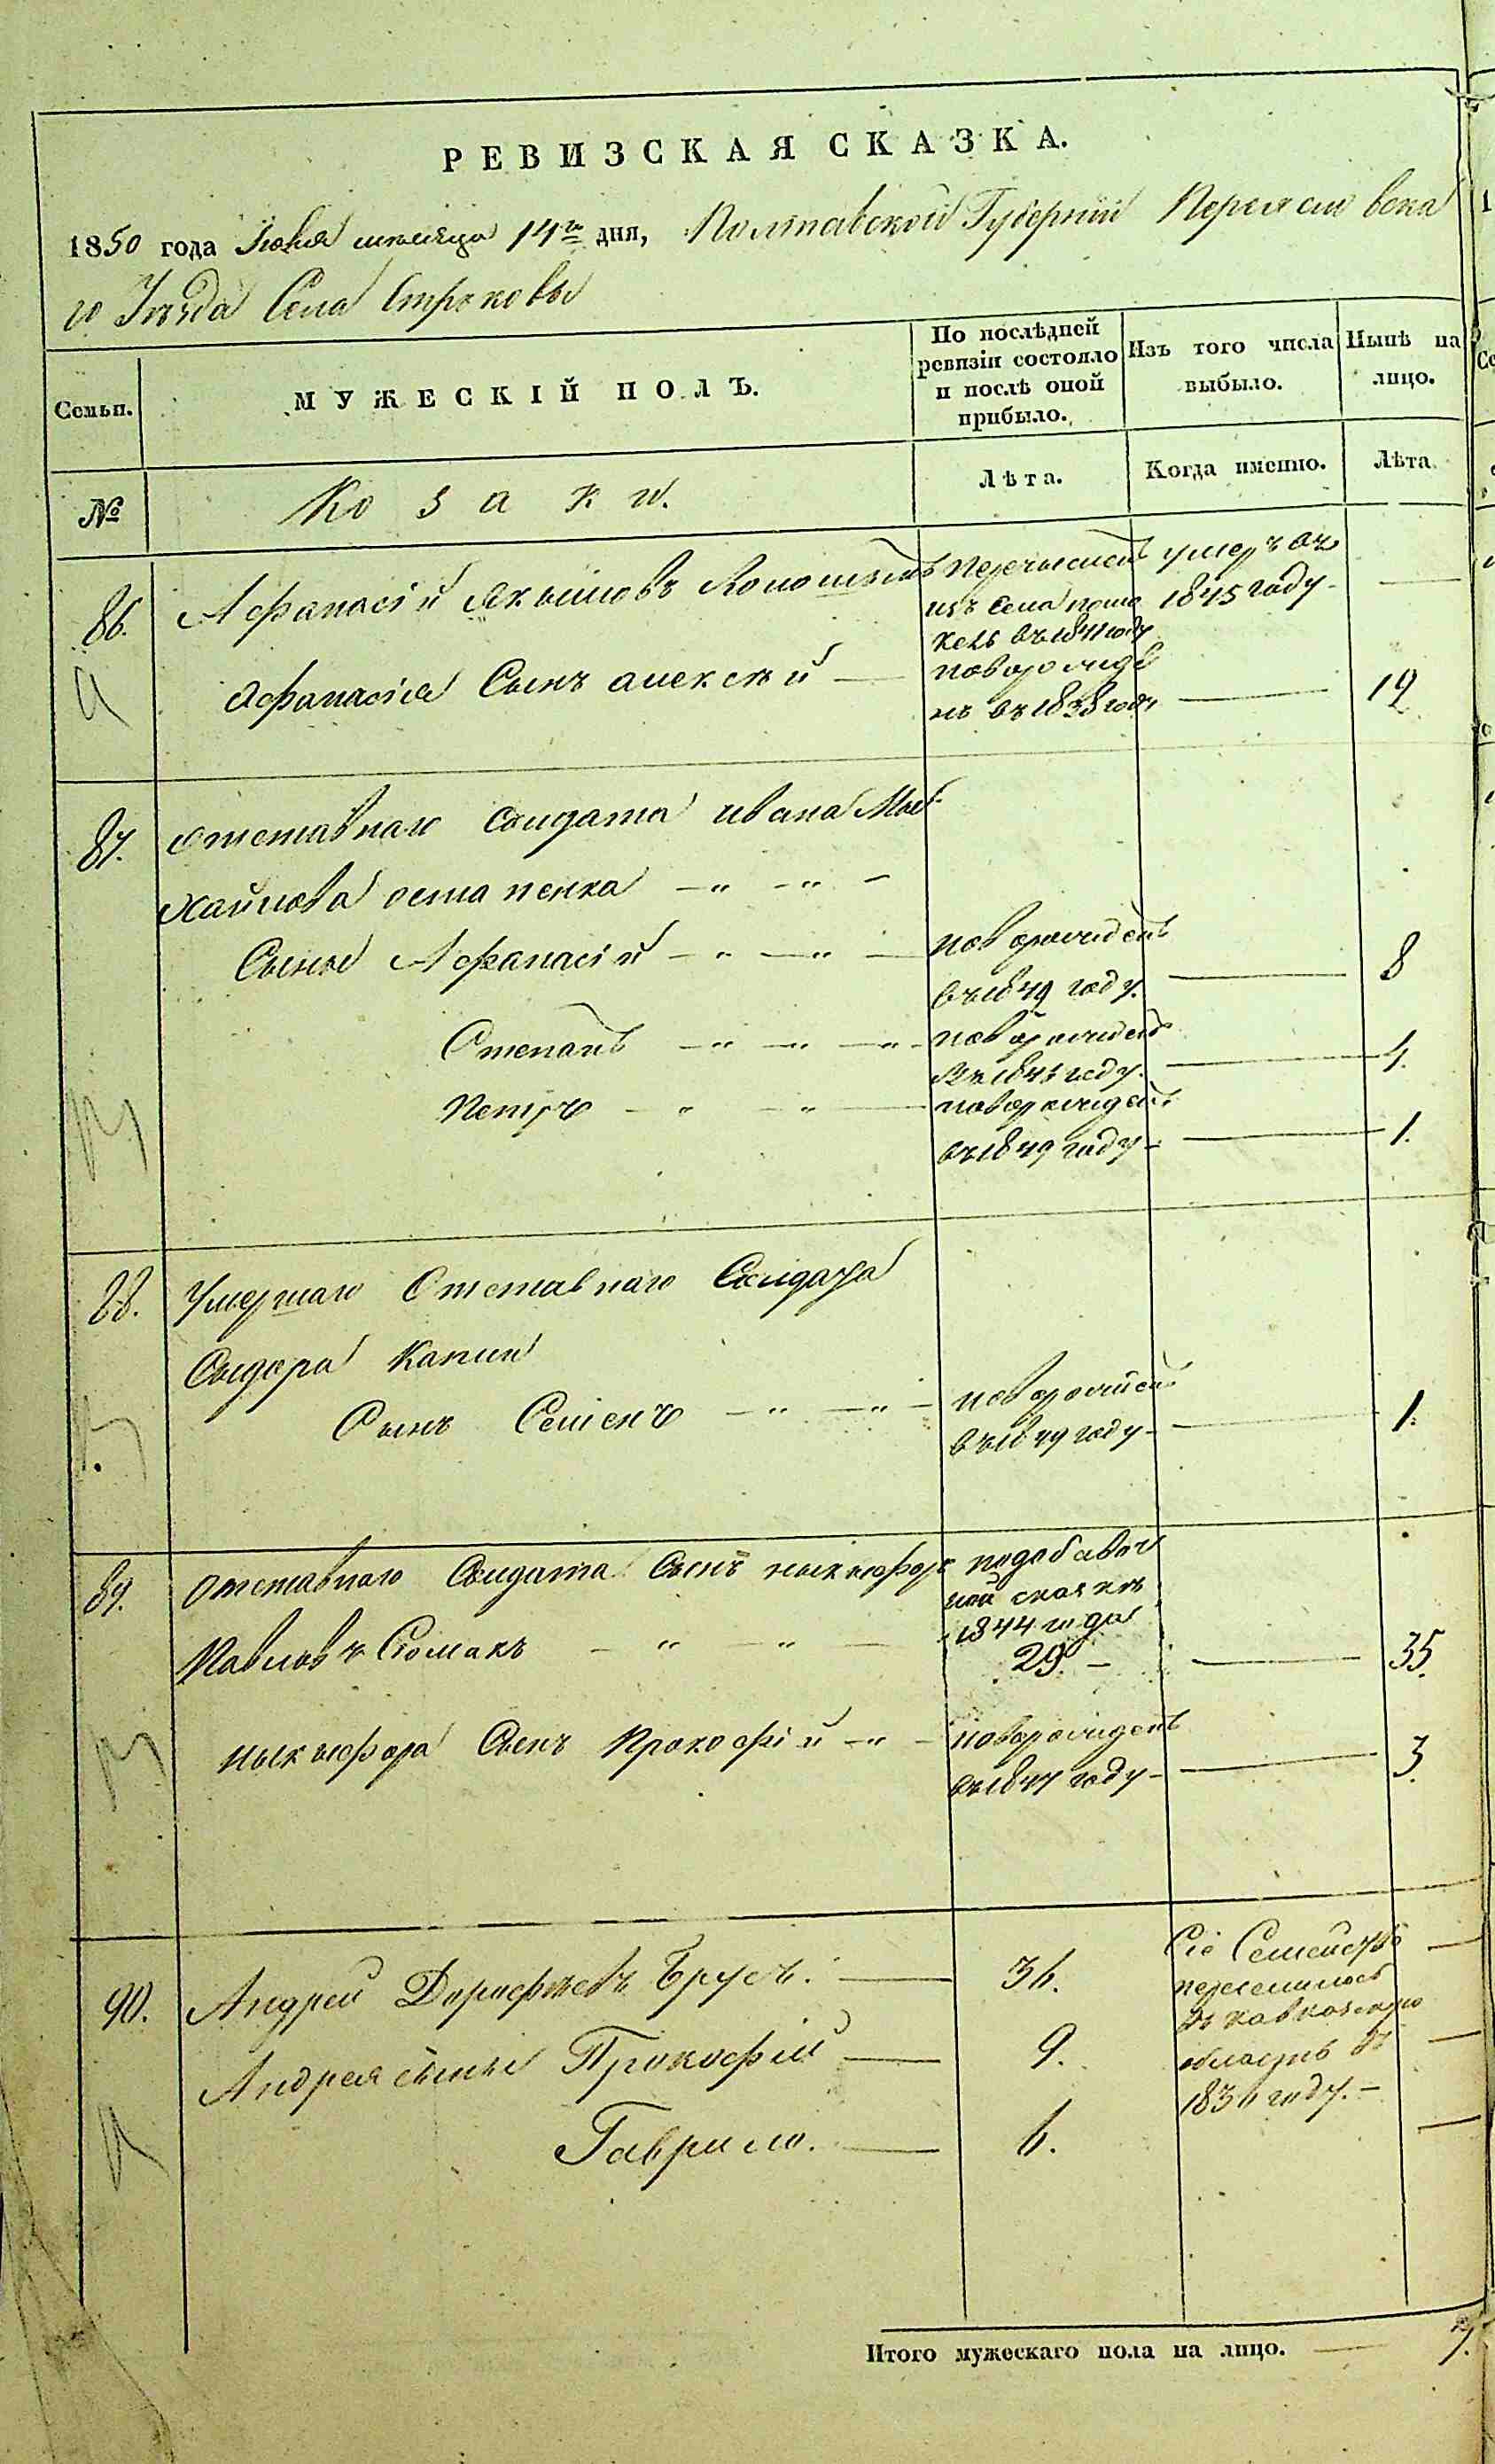 РЕВИЗСКАЯ СКАЗКА.
1850 года Июня мѣсяца 14го дня, Полтавской Губерніи Переяславска
го Уѣзда Села Строковы
Семьи.
МУЖЕСКІЙ ПОЛЪ.
По послѣдней ревизіи состояло и послѣ оной прибыло.
Изъ того числа выбыло.
Нынѣ на лицо.
№
Козаки.
Лѣта.
Когда именно.
Лѣта
86.
Афанасій Якимовъ
умеръ въ
изъ села
1845 году
въ 1841 году
Афанасія Сынъ алексѣй —
новорожде
нъ въ 1838 году
12
87.
отставнаго Солдата ивана Мы
хайлова остапенка — " — " —
Сыны Афанасій — " — " —
новорожденъ
8
году.
Степанъ — " — " — " —
новорожденъ
году.
4.
Петръ — " — " —
новорожденъ
въ 1849 году —
1.
88.
Умершаго Отставнаго Солдата
Сыдора
Сынъ Семенъ — " — " —
новорожденъ
въ 1849 году —
1.
89.
отставнаго Солдата Сынъ ныкыфоръ
подобавоч
ной сказкѣ
1844 года
Павловъ Сомакъ — " — " —
29. —
35.
ныкыфора Сынъ Прокофій — " —
новорожденъ
въ 1847 году —
3.
90.
Андрей Дорофѣевъ Брусъ. —
36.
Сіе Семейство
переселилось
въ кавказскую
область въ
году. —
Андрея сыны Прокофій —
9.
Гаврило. —
6.
Итого мужескаго пола на лицо. —
7.